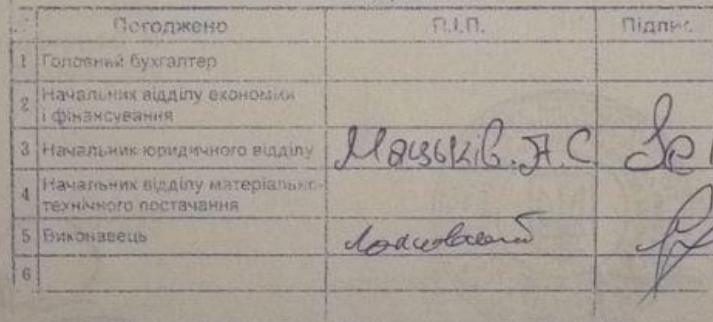 Погоджено П.І.П. Підпис
1 Головний бухгалтер
2 Начальник відділу економіки
і фінансування
3 Начальник юридичного відділу Мацьків. А. С
4 Начальник відділу матеріально-
технічного постачання
5 Виконавець
6